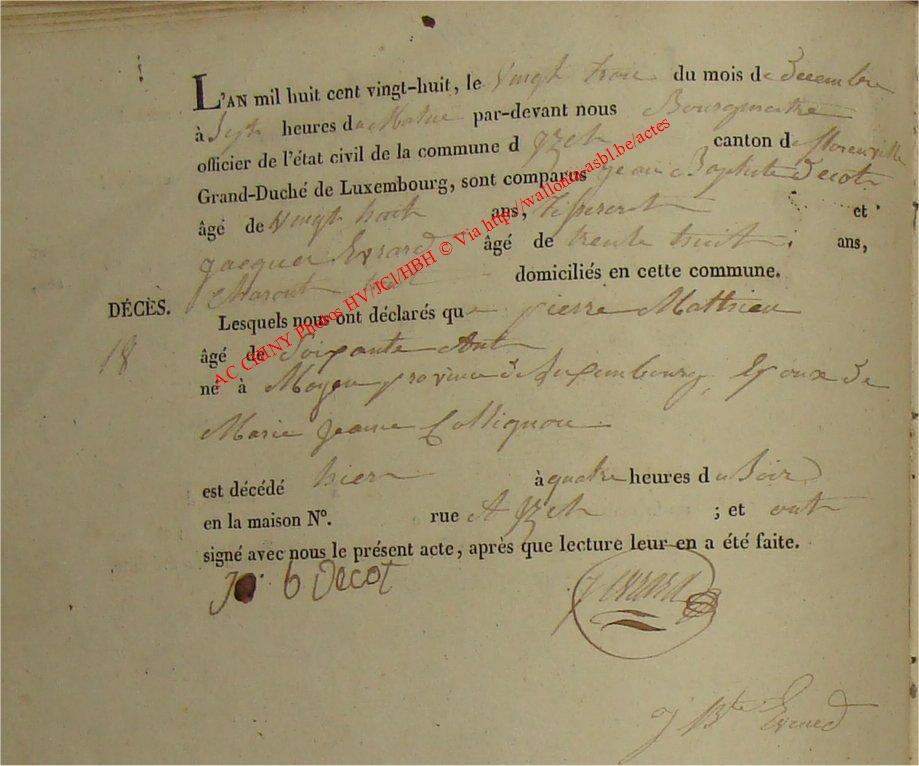 L'AN mil huit cent vingt-huit, le vingt trois du mois de Decembre
à Sept heures du Matin par-devant nous Bourgmestre
officier de l'état civil de la commune d'Izel canton de florenville
Grand-Duché de Luxembourg, sont comparus jean Baptiste Decot
âgé de vingt huit ans, tisserent et
jacques Evrard âgé de trente huit ans,
domiciliés en cette commune.
DÉCÈS.
18
Lesquels nous ont déclarés que pierre Mathieu
âgé de Soixante Ans
né à Moyen province de Luxembourg, Epoux de
Marie jeanne Collignon
est décédé hier à quatre heures du Soir
en la maison N°. rue A Izel ; et ont
signé avec nous le présent acte, après que lecture leur en a été faite.
J. b Decot
j evrard
j Bte Evrard
AC CHINY Photos HV/JCl/HBH © Via http://wallonia-asbl.be/actes